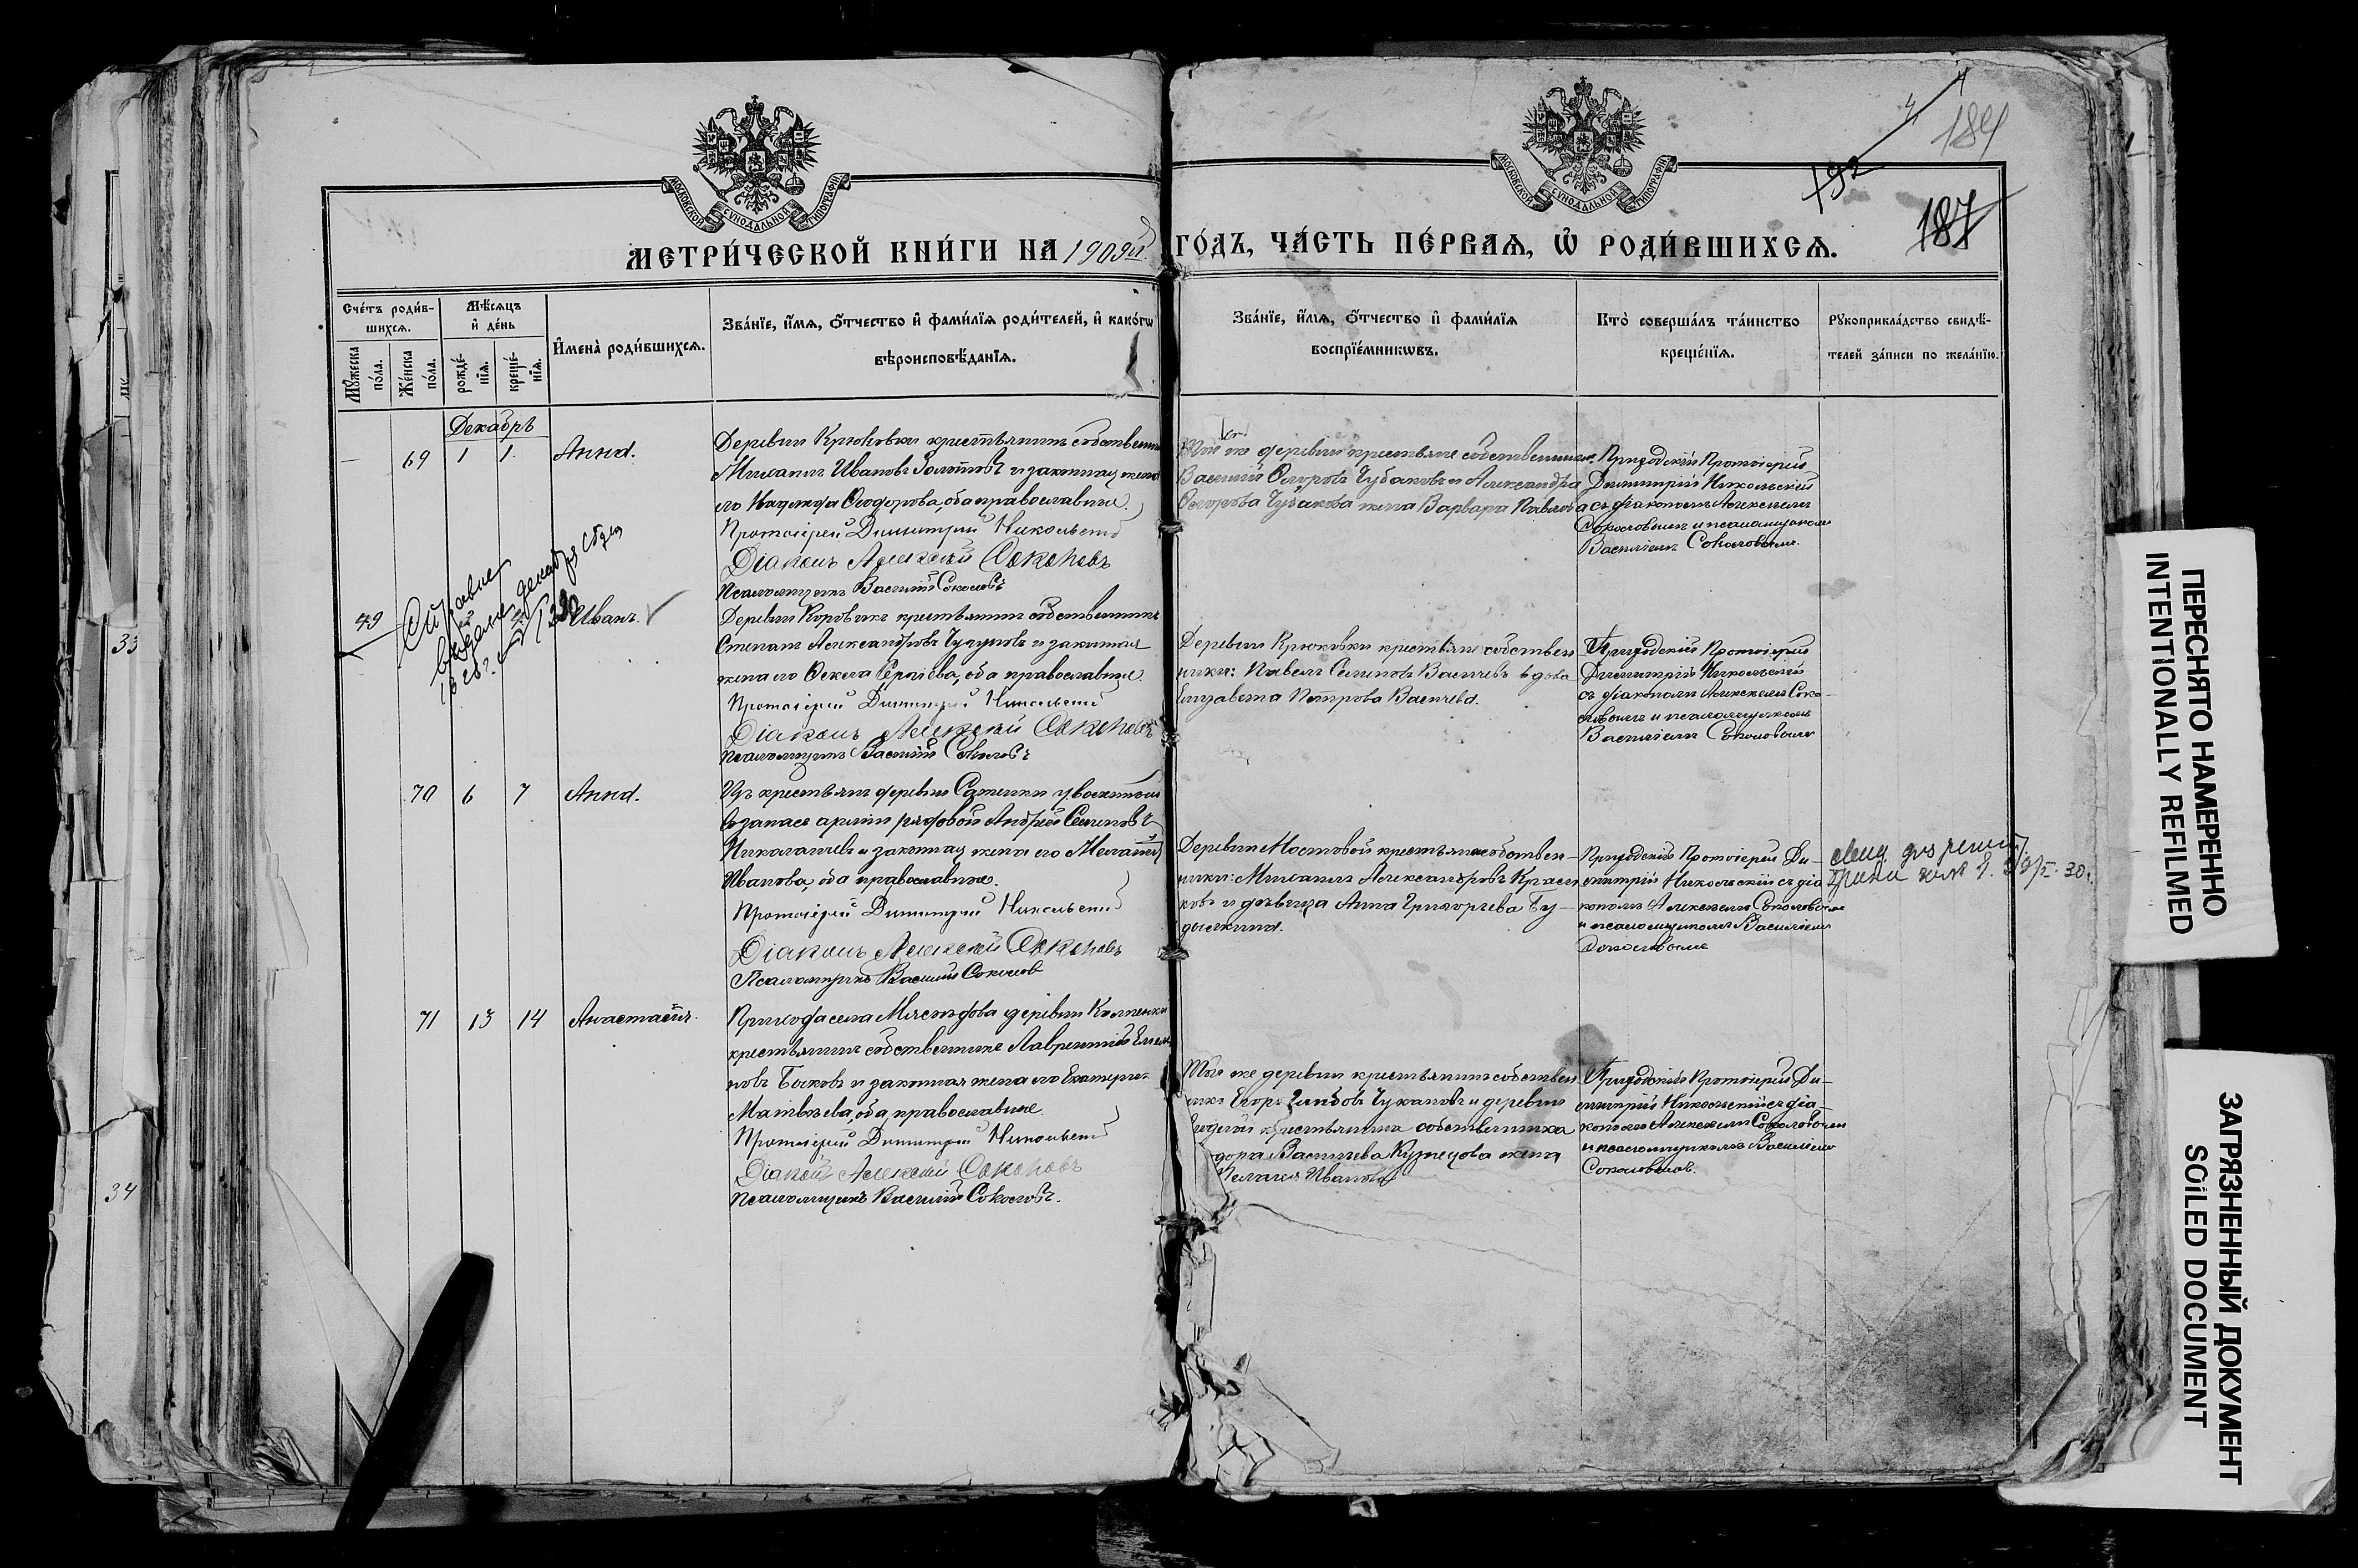 МОСКОВСКОЙ СѴНОДАЛЬНОЙ ТИПОГРАФІИ
МОСКОВСКОЙ СѴНОДАЛЬНОЙ ТИПОГРАФІИ
192
184
187
МЕТРИ́ЧЕСКОЙ КНИ́ГИ НА 1909й ГО́ДЪ, ЧА́СТЬ ПЕ́РВАѦ, Ѡ҆ РОДИ́ВШИХСѦ.
Сче́тъ роди́в-
шихсѧ.
Мꙋ́жеска по́ла.
Же́нска по́ла.
Мѣ́сѧцъ
и҆ де́нь
рожде́-нїѧ.
креще́-нїѧ.
И҆мена̀ роди́вшихсѧ.
Зва́нїе, и҆́мѧ, ѻ҆́тчество и҆ фами́лїѧ роди́телей, и҆ како́гѡ
вѣроисповѣ́данїѧ.
Зва́нїе, и҆́мѧ, ѻ҆́тчество и҆ фами́лїѧ
воспрїе́мникѡвъ.
Кто̀ соверша́лъ та́инство
креще́нїѧ.
Рꙋкоприкла́дство свидѣ́-
телей за́писи по жела́нїю.
Декабрь
69 1 1 Анна.
Деревни Крюковки крестьянинъ собственникъ
Михаилъ Ивановъ Золотовъ и законная жена
его Надежда Ѳеодорова, оба православные.
Протоіерей Димитрій Никольскій
Діаконъ Алексѣй Соколовъ
Псаломщикъ Василій Соколовъ
Той же деревни крестьяне собственники
Василій Егоровъ Чубаковъ и Александра
Егорова Чубакова жена Варвара Павлова
Приходскій Протоіерей
Димитрій Никольскій
съ діакономъ Алексѣемъ
Соколовымъ и псаломщикомъ
Василіемъ Соколовымъ.
49 Иванъ.
Справка
выдана декабря
1926 г.
Деревни Коровикъ крестьянинъ собственникъ
Степанъ Александровъ Чугуновъ и законная
жена его Ѳекла Сергіева, оба православные.
Протоіерей Димитрій Никольскій
Діаконъ Алексѣй Соколовъ
Псаломщикъ Василій Соколовъ
Деревни Крюковки крестьяне собствен
ники: Павелъ Семеновъ Васичевъ вдова
Елизавета Петрова Васичева.
Приходскій Протоіерей
Димитрій Никольскій
съ діакономъ Алексѣемъ Соко-
ловымъ и псаломщикомъ
Василіемъ Соколовымъ
70 6 7 Анна.
Изъ крестьянъ деревни
запаса арміи рядовой Андрей Семеновъ
Николаичевъ и законная жена его Меланія
Иванова, оба православные.
Протоіерей Димитрій Никольскій
Діаконъ Алексѣй Соколовъ
Псаломщикъ Василій Соколов
Деревни Мостовой крестьяне собствен-
ники: Михаилъ Александровъ
и дѣвица Анна Григорьева Бу-
Приходскій Протоіерей Ди-
митрій Никольскій съ діа
кономъ Алексѣемъ Соколовымъ
и псаломщикомъ Василіемъ
Соколовымъ
71 13 14 Анастасія.
Прихода села деревни
крестьянинъ собственникъ Лаврентій
новъ Быковъ и законная жена его Екатерина
Матвѣева, оба православные.
Протоіерей Димитрій Никольскій
Діаконъ Алексѣй Соколовъ
Псаломщикъ Василій Соколовъ.
Той же деревни крестьянинъ собствен
никъ Егоръ Чукановъ и деревни
крестьянина собственника
Васичева Кузнецова жена
Пелагея Иванова
Приходскій Протоіерей Ди-
митрій Никольскій съ діа
кономъ Алексѣемъ Соколовымъ
и псаломщикомъ Василіемъ
Соколовымъ.
33
34
ПЕРЕСНЯТО НАМЕРЕННО
INTENTIONALLY REFILMED
ЗАГРЯЗНЕННЫЙ ДОКУМЕНТ
SOILED DOCUMENT